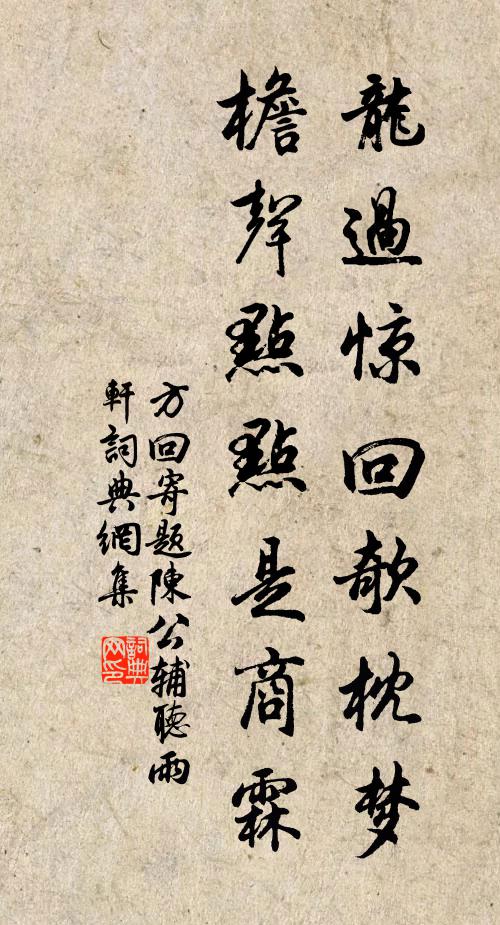 龍過惊回欹枕梦
檐聲點點是商霖
方回寄题陳公辅聽雨
軒詞典網集
詞典網印